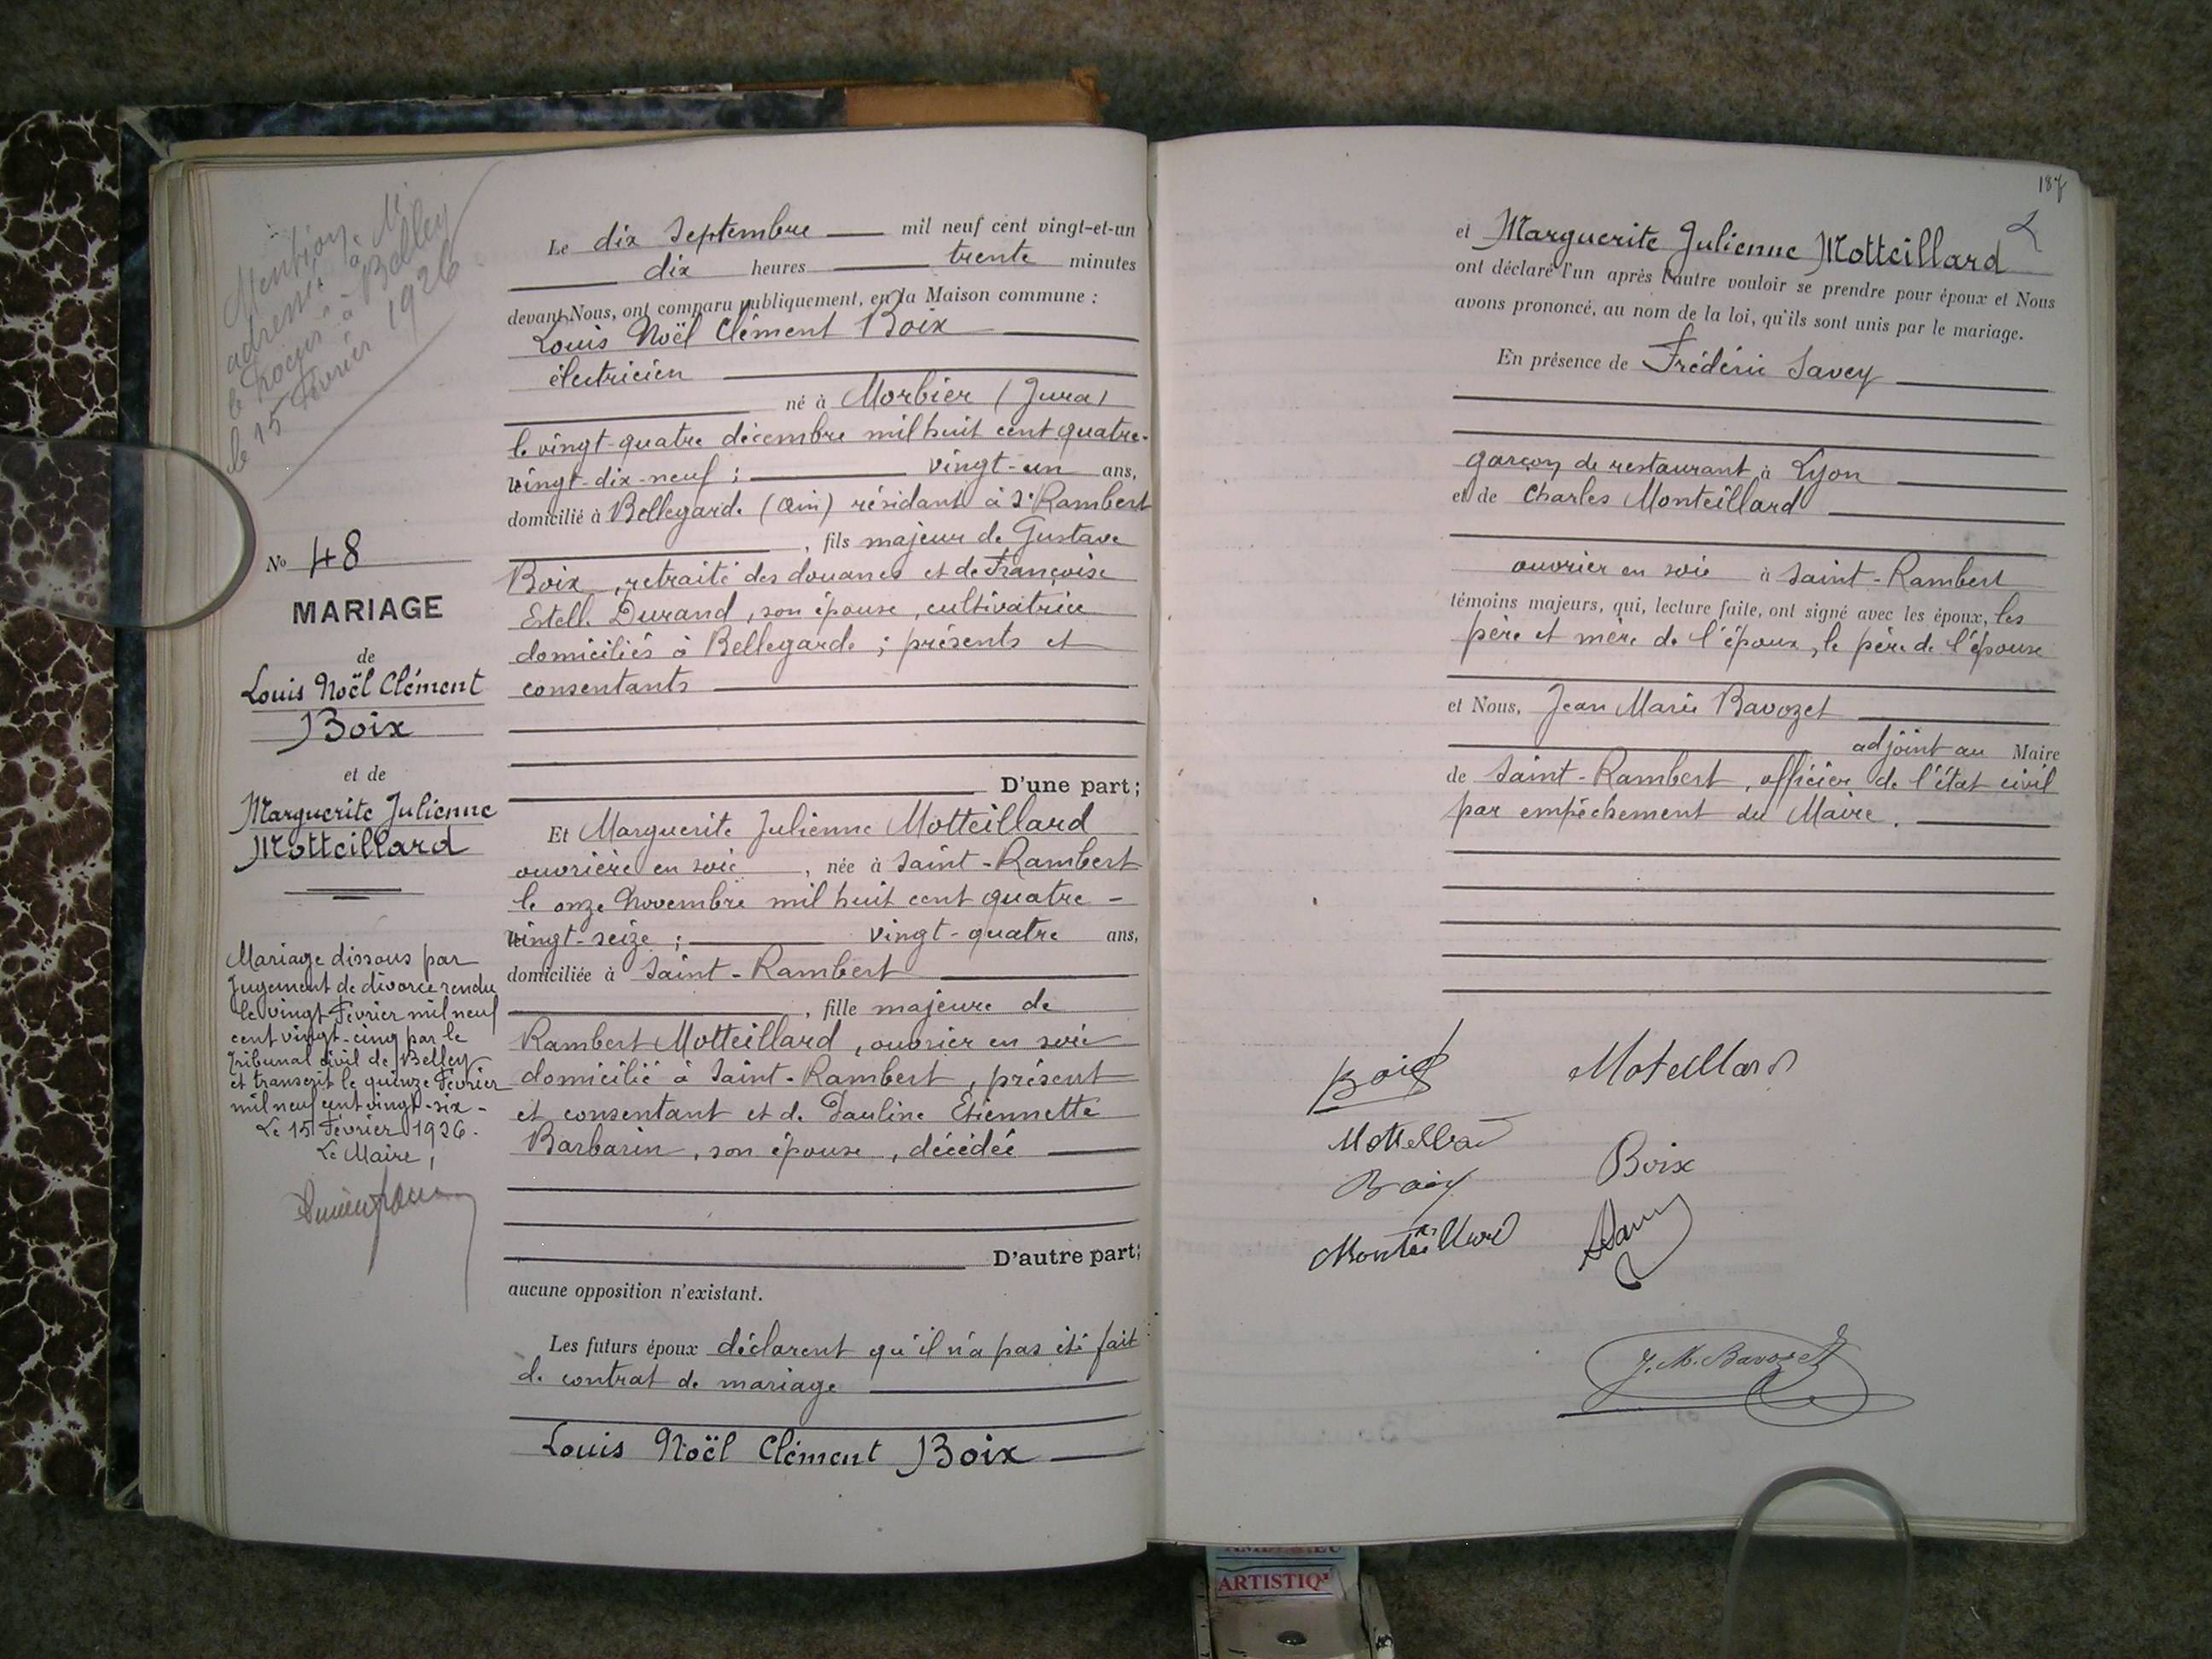 Mention
adressée à Mr
le Procur à Belley
le 15 Février 1926
No 48
MARIAGE
de
Louis Noël Clément
Boix
et de
Marguerite Julienne
Motteillard
Mariage dissous par
Jugement de divorce rendu
le vingt Février mil neuf
cent vingt-cinq par le
Tribunal civil de Belley
et transcrit le quinze Février
mil neuf cent vingt-six -
Le 15 Février 1926.
Le Maire,
Le dix Septembre mil neuf cent vingt-et-un
dix heures trente minutes
devant Nous, ont comparu publiquement, en la Maison commune :
Louis Noël Clément Boix
électricien
né à Morbier (Jura)
le vingt-quatre décembre mil huit cent quatre-
vingt-dix-neuf ; vingt-un ans,
domicilié à Bellegarde (Ain) résidant à St Rambert
, fils majeur de Gustave
Boix, retraité des douanes et de Françoise
Estelle Durand, son épouse, cultivatrice
domiciliés à Bellegarde ; présents et
consentants
D'une part ;
Et Marguerite Julienne Motteillard
ouvrière en soie , née à Saint-Rambert
le onze Novembre mil huit cent quatre-
vingt-seize ; vingt-quatre ans,
domiciliée à Saint-Rambert
, fille majeure de
Rambert Motteillard, ouvrier en soie
domicilié à Saint-Rambert, présent
et consentant et de Pauline Etiennette
Barbarin, son épouse, décédée
D'autre part ;
aucune opposition n'existant.
Les futurs époux déclarent qu'il n'a pas été fait
de contrat de mariage
Louis Noël Clément Boix
187
et Marguerite Julienne Motteillard
ont déclaré l'un après l'autre vouloir se prendre pour époux et Nous
avons prononcé, au nom de la loi, qu'ils sont unis par le mariage.
En présence de Frédéric Savey
garçon de restaurant à Lyon
et de Charles Monteillard
ouvrier en soie à Saint-Rambert
témoins majeurs, qui, lecture faite, ont signé avec les époux, les
père et mère de l'époux, le père de l'épouse
et Nous, Jean Marie Bavozet
adjoint au Maire
de Saint-Rambert, officier de l'état civil
par empêchement du Maire.
Boix Moteillard
Boix
Monteillard
J. M. Bavozet
ARTISTIQ